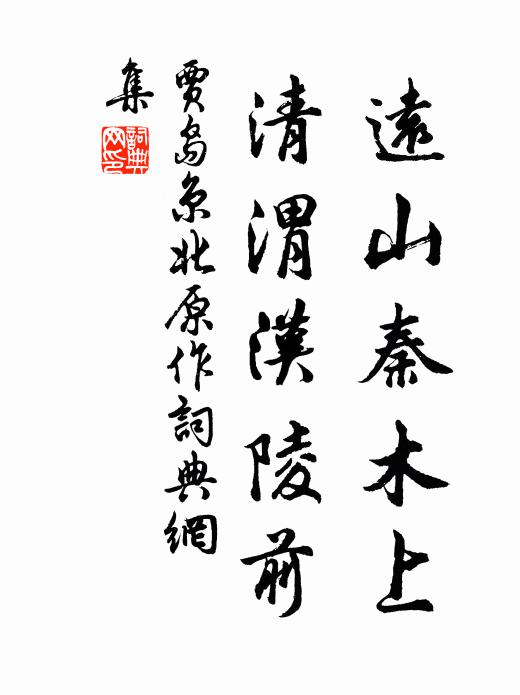 遠山秦木上
清渭漢陵前
賈島京北原作詞典網
集
詞典
网印